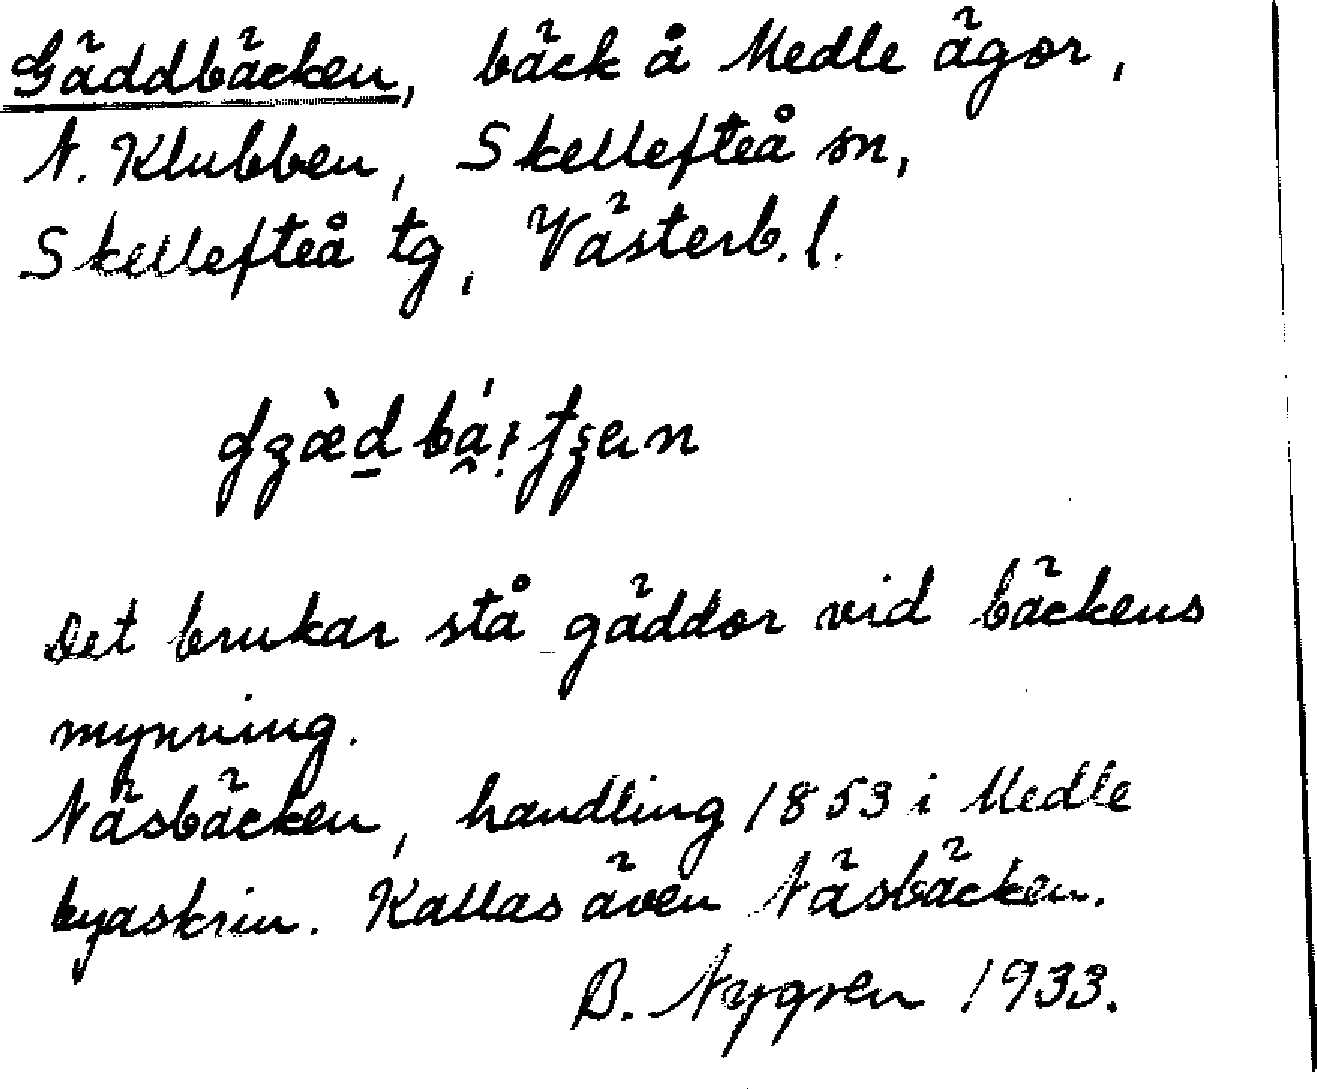 Gäddbäcken, bäck å Medle ägor,
N. Klubben, Skellefteå sn,
Skellefteå tg, Västerb. l.
Det brukar stå gäddor vid bäckens
mynning.
Näsbäcken, handling 1853 i Medle
byaskrin. Kallas även Näsbäcken.
B. Nygren 1933.